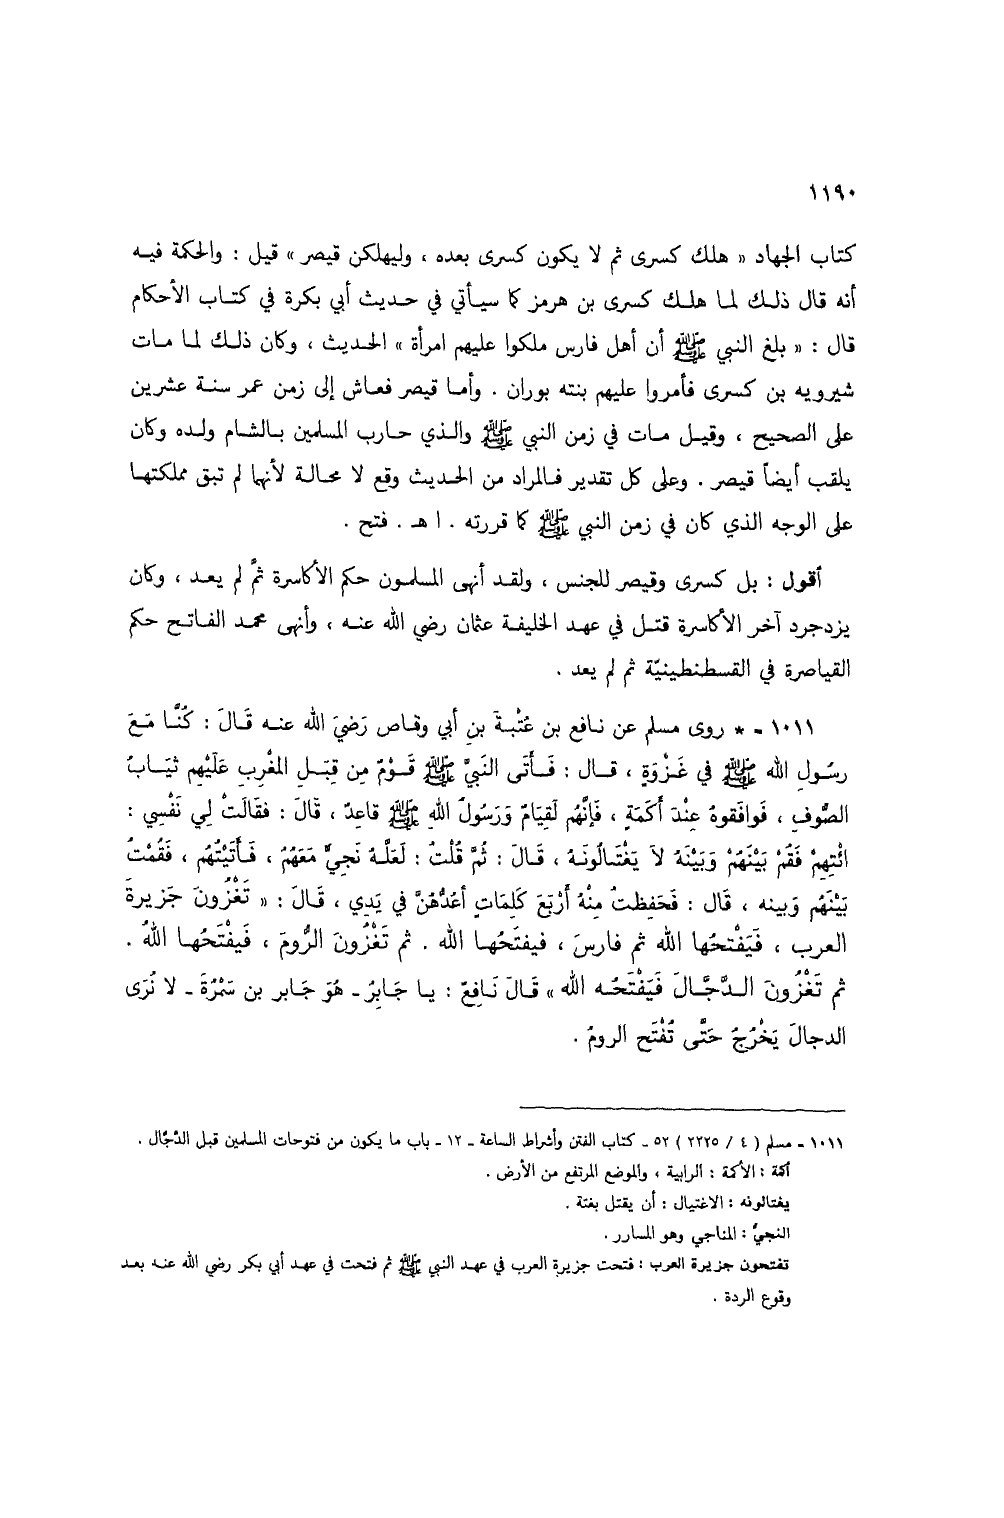 ١١٩٠
كتاب الجهاد « هلك كسرى ثم لا يكون كسرى بعده ، وليهلكن قيصر » قيل : والحكمة فيه
أنه قال ذلك لما هلك كسرى بن هرمز كما سيأتي في حديث أبي بكرة في كتاب الأحكام
قال : « بلغ النبي ﷺ أن أهل فارس ملكوا عليهم امرأة » الحديث ، وكان ذلك لما مات
شيرويه بن كسرى فأمروا عليهم بنته بوران . وأما قيصر فعاش إلى زمن عمر سنة عشرين
على الصحيح ، وقيل مات في زمن النبي ﷺ والذي حارب المسلمين بالشام ولده وكان
يلقب أيضاً قيصر . وعلى كل تقدير فالمراد من الحديث وقع لا محالة لأنهما لم تبق مملكتهما
على الوجه الذي كان في زمن النبي ﷺ كما قررته . ا هـ . فتح .
أقول : بل كسرى وقيصر للجنس ، ولقد أنهى المسلمون حكم الأكاسرة ثمَّ لم يعد ، وكان
يزدجرد آخر الأكاسرة قتل في عهد الخليفة عثمان رضي الله عنه ، وأنهى محمد الفاتح حكم
القياصرة في القسطنطينيّة ثم لم يعد .
١٠١١ - * روى مسلم عن نافع بن عُتْبةَ بنِ أبي وقاص رَضيَ الله عنه قَالَ : كُنَّا مَعَ
رسُولِ الله ﷺ في غَزْوَةٍ ، قال : فَأَتَى النَّبيَّ ﷺ قَوْمٌ مِن قِبَلِ المغْرِبِ عَلَيْهِم ثيَابُ
الصُّوفِ ، فَوافَقوهُ عنْدَ أَكَمَةٍ ، فَإنَّهُم لَقِيَامٌ وَرَسُولُ اللهِ ﷺ قاعِدٌ ، قَالَ : فقَالَتْ لِي نَفْسِي :
ائْتِهِمْ فَقُمْ بَيْنَهُمْ وَبَيْنَهُ لاَ يَغْتَالُونَهُ ، قَالَ : ثُمَّ قُلْتُ : لَعَلَّهُ نَجِيٌّ مَعَهُمْ ، فَأَتَيْتُهُم ، فَقُمْتُ
بَيْنَهُم وَبينه ، قَال : فَحَفِظتُ مِنْهُ أَرْبَعَ كَلِمَاتٍ أعُدُّهُنَّ في يَدِي ، قَالَ : « تَغْزُونَ جَزيرةَ
العربِ ، فَيَفْتحُها الله ثم فارسَ ، فيفتَحُها الله . ثم تَغْزُونَ الرُّومَ ، فَيفْتَحُها اللهُ .
ثم تَغْزُونَ الدَّجَّالَ فَيَفْتَحُه الله » قَالَ نَافِعٌ : يا جَابِرُ ـ هُوَ جَابر بن سَمُرَةَ ـ لا نُرَى
الدجالَ يَخْرُجُ حَتَّى تُفْتَحَ الرومُ .
١٠١١ - مسلم ( ٤ / ٢٢٢٥ ) ٥٢ ـ كتاب الفتن وأشراط الساعة ـ ١٢ ـ باب ما يكون من فتوحات المسلمين قبل الدَّجَّال .
أكمة : الأكمة : الرابية ، والموضع المرتفع من الأرض .
يغتالونه : الاغتيال : أن يقتل بغتة .
النجيُّ : المناجي وهو المسارر .
تفتحون جزيرة العرب : فتحت جزيرة العرب في عهد النبي ﷺ ثم فتحت في عهد أبي بكر رضي الله عنه بعد
وقوع الردة .